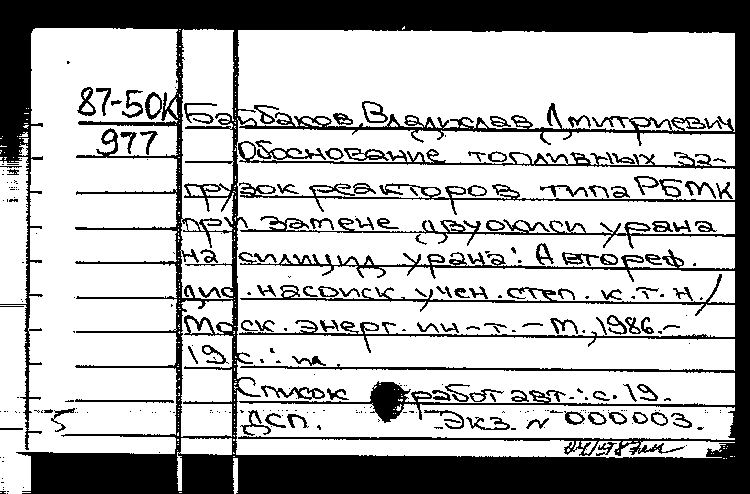 87-50К
977
Байбаков, Владислав Дмитриевич
Обоснование топливных за-
грузок реакторов типа РБМК
при замене двуокиси урана
на силицид урана: Автореф.
дис. на соиск. учен. степ. к.т.н. /
Моск. энерг. ин-т. - М., 1986. -
19 с.: ил.
Список работ авт.: с. 19.
5 ДСП. Экз. N 000003.